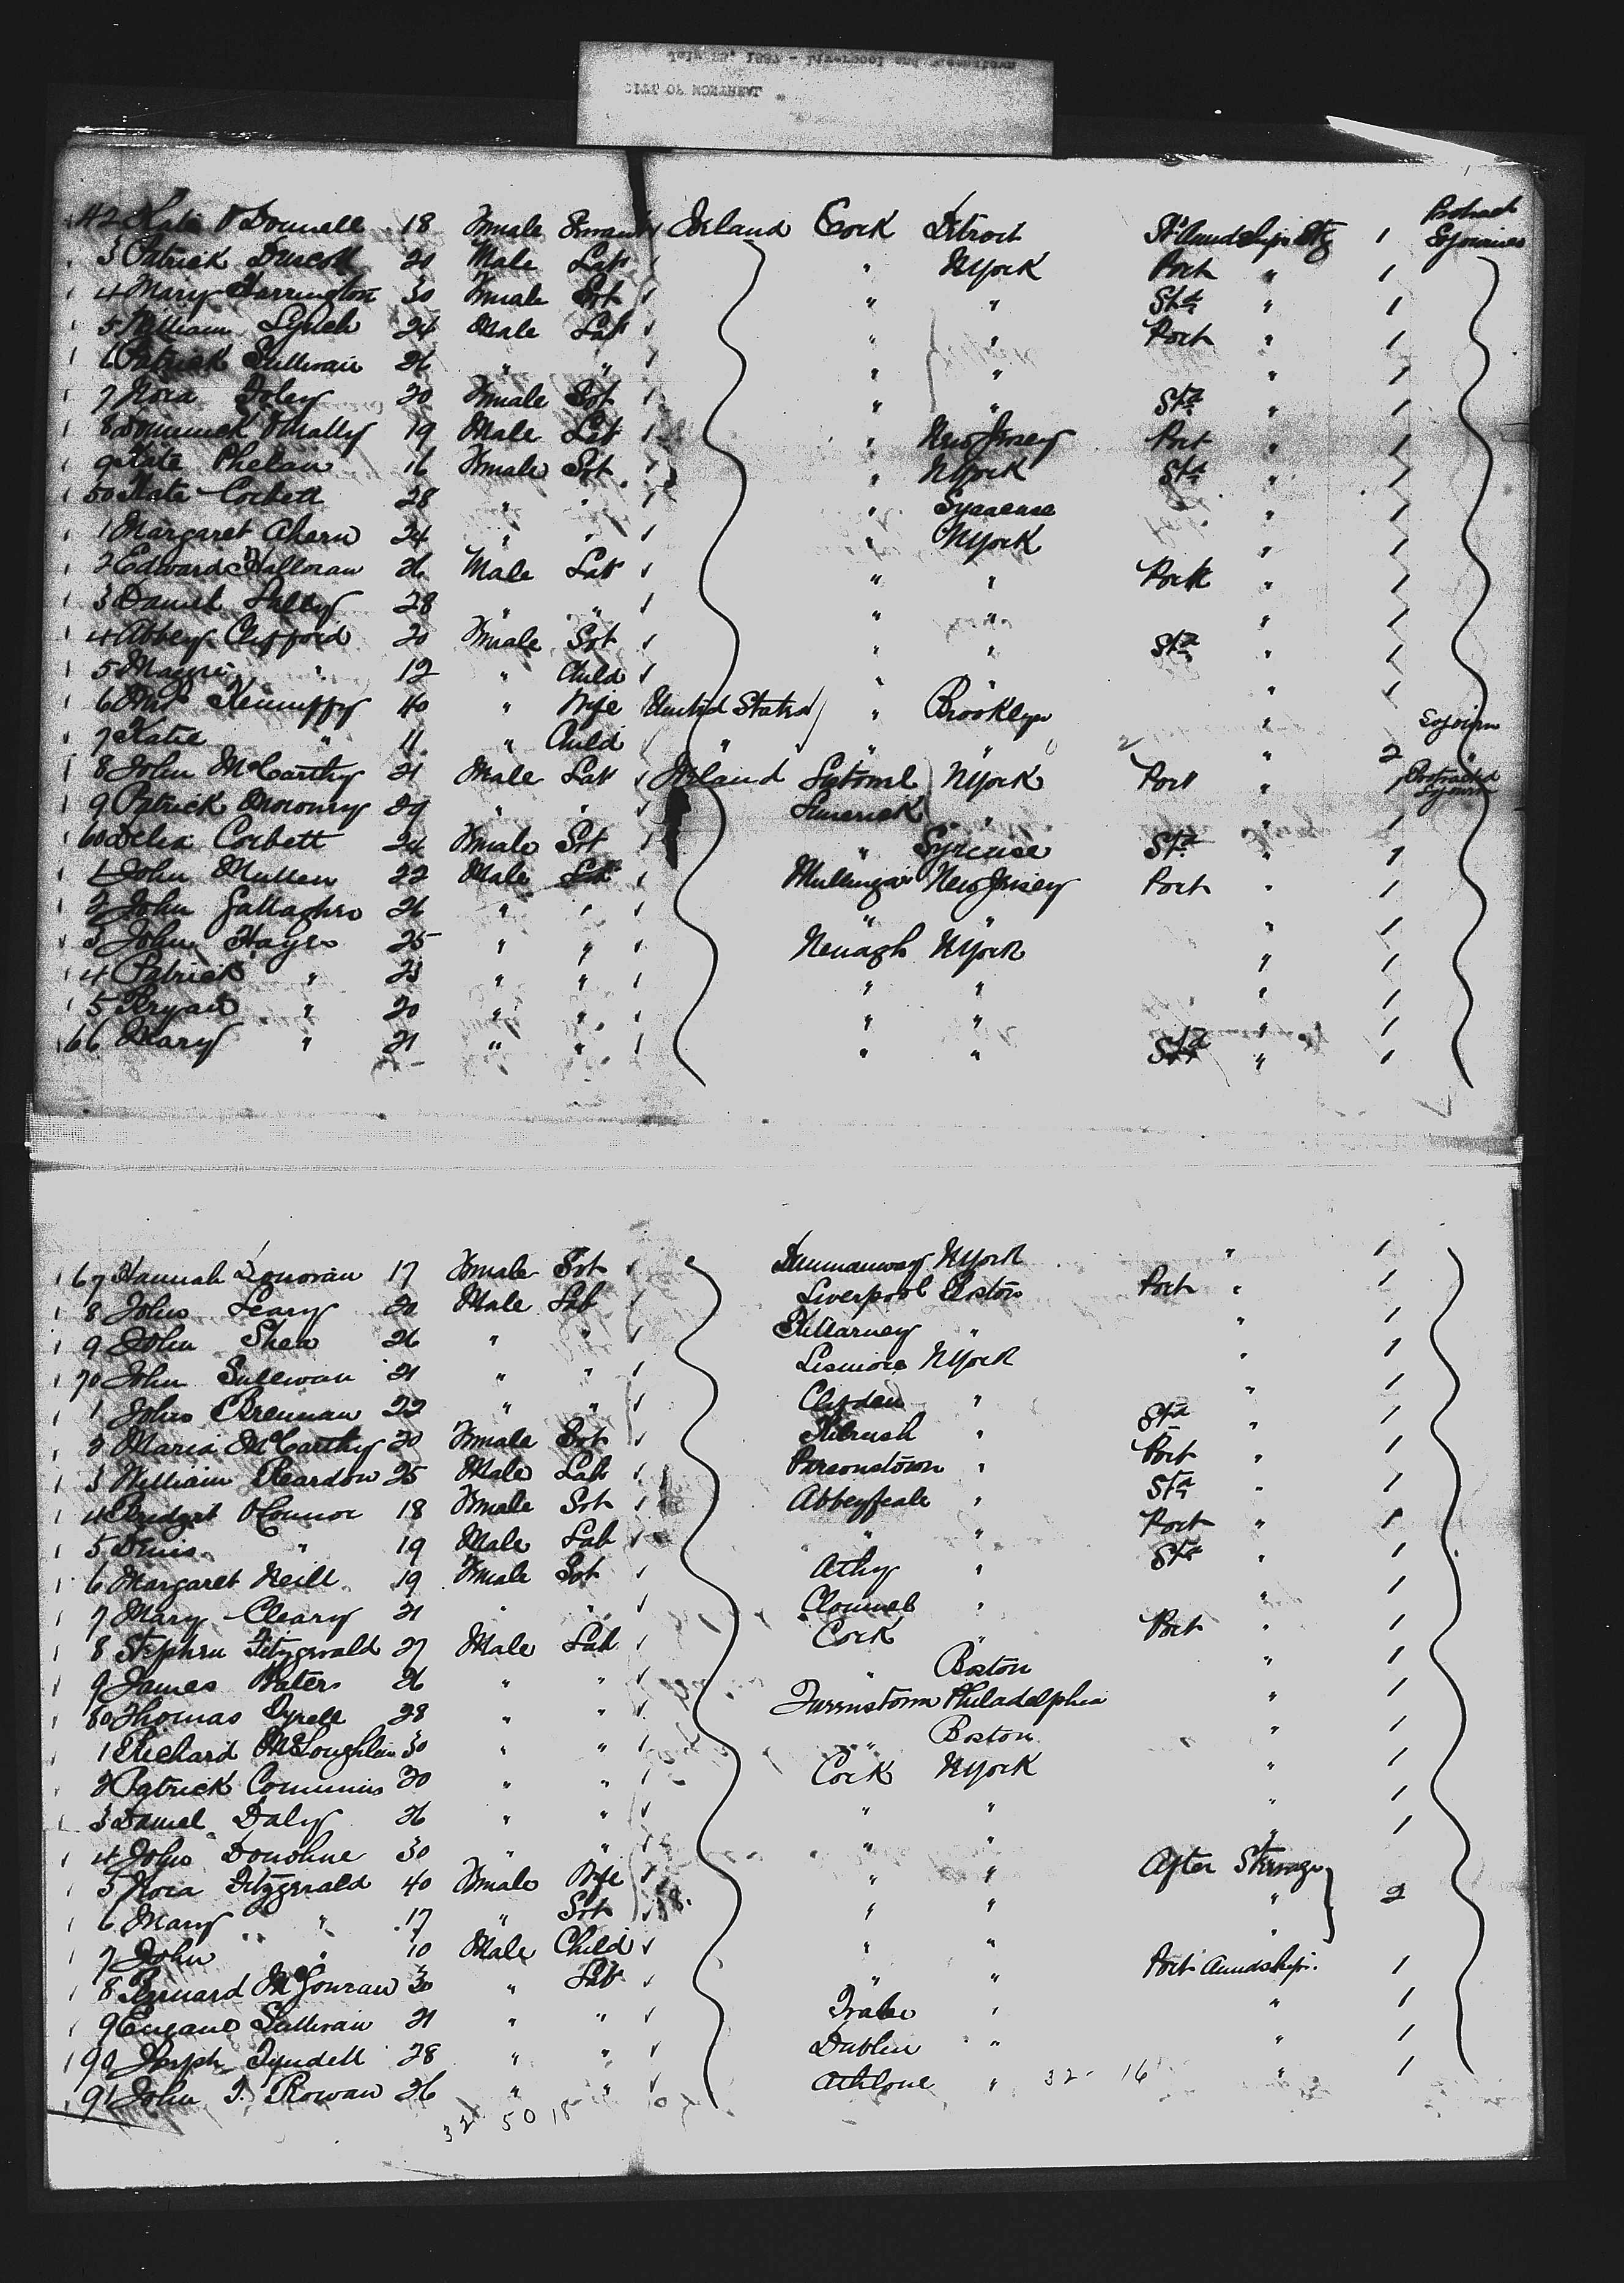 CITY OF MONTREAL
July 25, 1887 - Liverpool and Queenstown
Protract
42 Kate O'Donnell 18 Female Servant Ireland Cork Detroit St'd amidships Stg 1 Sojourners
3 Patrick Driscoll 21 Male Lab " NYork Port " 1
4 Mary Harrington 30 Female Svt " " Std " 1
5 William Lynch 24 Male Lab " " Port " 1
6 Patrick Sullivan 26 " " " " " 1
7 Nora Foley 20 Female Svt " " Std " 1
8 Dominick O'Mally 19 Male Lab " New Jersey Port " 1
9 Kate Phelan 16 Female Svt " NYork Std " 1
50 Kate Corbett 28 " " " Syracuse " 1
1 Margaret Ahern 24 " " " NYork " 1
2 Edward O'Halloran 26 Male Lab " " Port " 1
3 Daniel Lally 28 " " " " " 1
4 Abbey Clifford 20 Female Svt " " Std " 1
5 Maggie " 12 " Child " " " 1
6 Mrs 40 " Wife United States " Brooklyn " Sojourn
7 Katie " 11 " Child " " " " 2 "
8 John McCarthy 21 Male Lab Ireland NYork Port " 1 Protracted Sojourn
9 Patrick Moroney 29 " " Limerick " " 1
60 Delia Corbett 24 Female Svt " Syracuse Std " 1
1 John Mullen 22 Male Lab Mullingar New Jersey Port " 1
2 John Gallagher 26 " " " " " 1
3 John Hayes 25 " " Nenagh NYork " 1
4 Patrick " 23 " " " " " 1
5 Bryan " 20 " " " " " 1
66 Mary " 21 " " " " Std " 1
67 Hannah Donovan 17 Female Svt Dunmanway NYork " 1
8 John Leary 20 Male Lab Liverpool Boston Port " 1
9 John Shea 26 " " Killarney " " 1
70 John Sullivan 21 " " Lismore NYork " 1
1 John Brennan 22 " " " " 1
2 Maria McCarthy 20 Female Svt Kilrush " Std " 1
3 William Reardon 25 Male Lab Parsonstown " Port " 1
4 Bridget O'Connor 18 Female Svt Abbeyfeale " Std " 1
5 Denis " 19 Male Lab " " Port " 1
6 Margaret Neill 19 Female Svt Athy " Std " 1
7 Mary Cleary 21 " " Clonmel " " 1
8 Stephen Fitzgerald 27 Male Lab Cork " Port " 1
9 James Waters 26 " " " Boston " 1
80 Thomas Tyrell 28 " " Queenstown Philadelphia " 1
1 Richard McLoughlin 30 " " " Boston " 1
2 Patrick Commins 20 " " Cork NYork " 1
3 Daniel Daly 26 " " " " " 1
4 John Donohue 30 " " " " " 1
5 Nora Fitzgerald 40 Female Wife " " After Steerage
6 Mary " 17 " Svt " " " 2
7 John " 10 Male Child " " "
8 Bernard McGowran 30 " Lab " " Port amidships 1
9 Eugane Sullivan 21 " " Tralee " " 1
90 Joseph Tyndell 28 " " Dublin " " 1
91 John J. Rowan 26 " " Athlone " 32 - 16 " 1
32 50 18